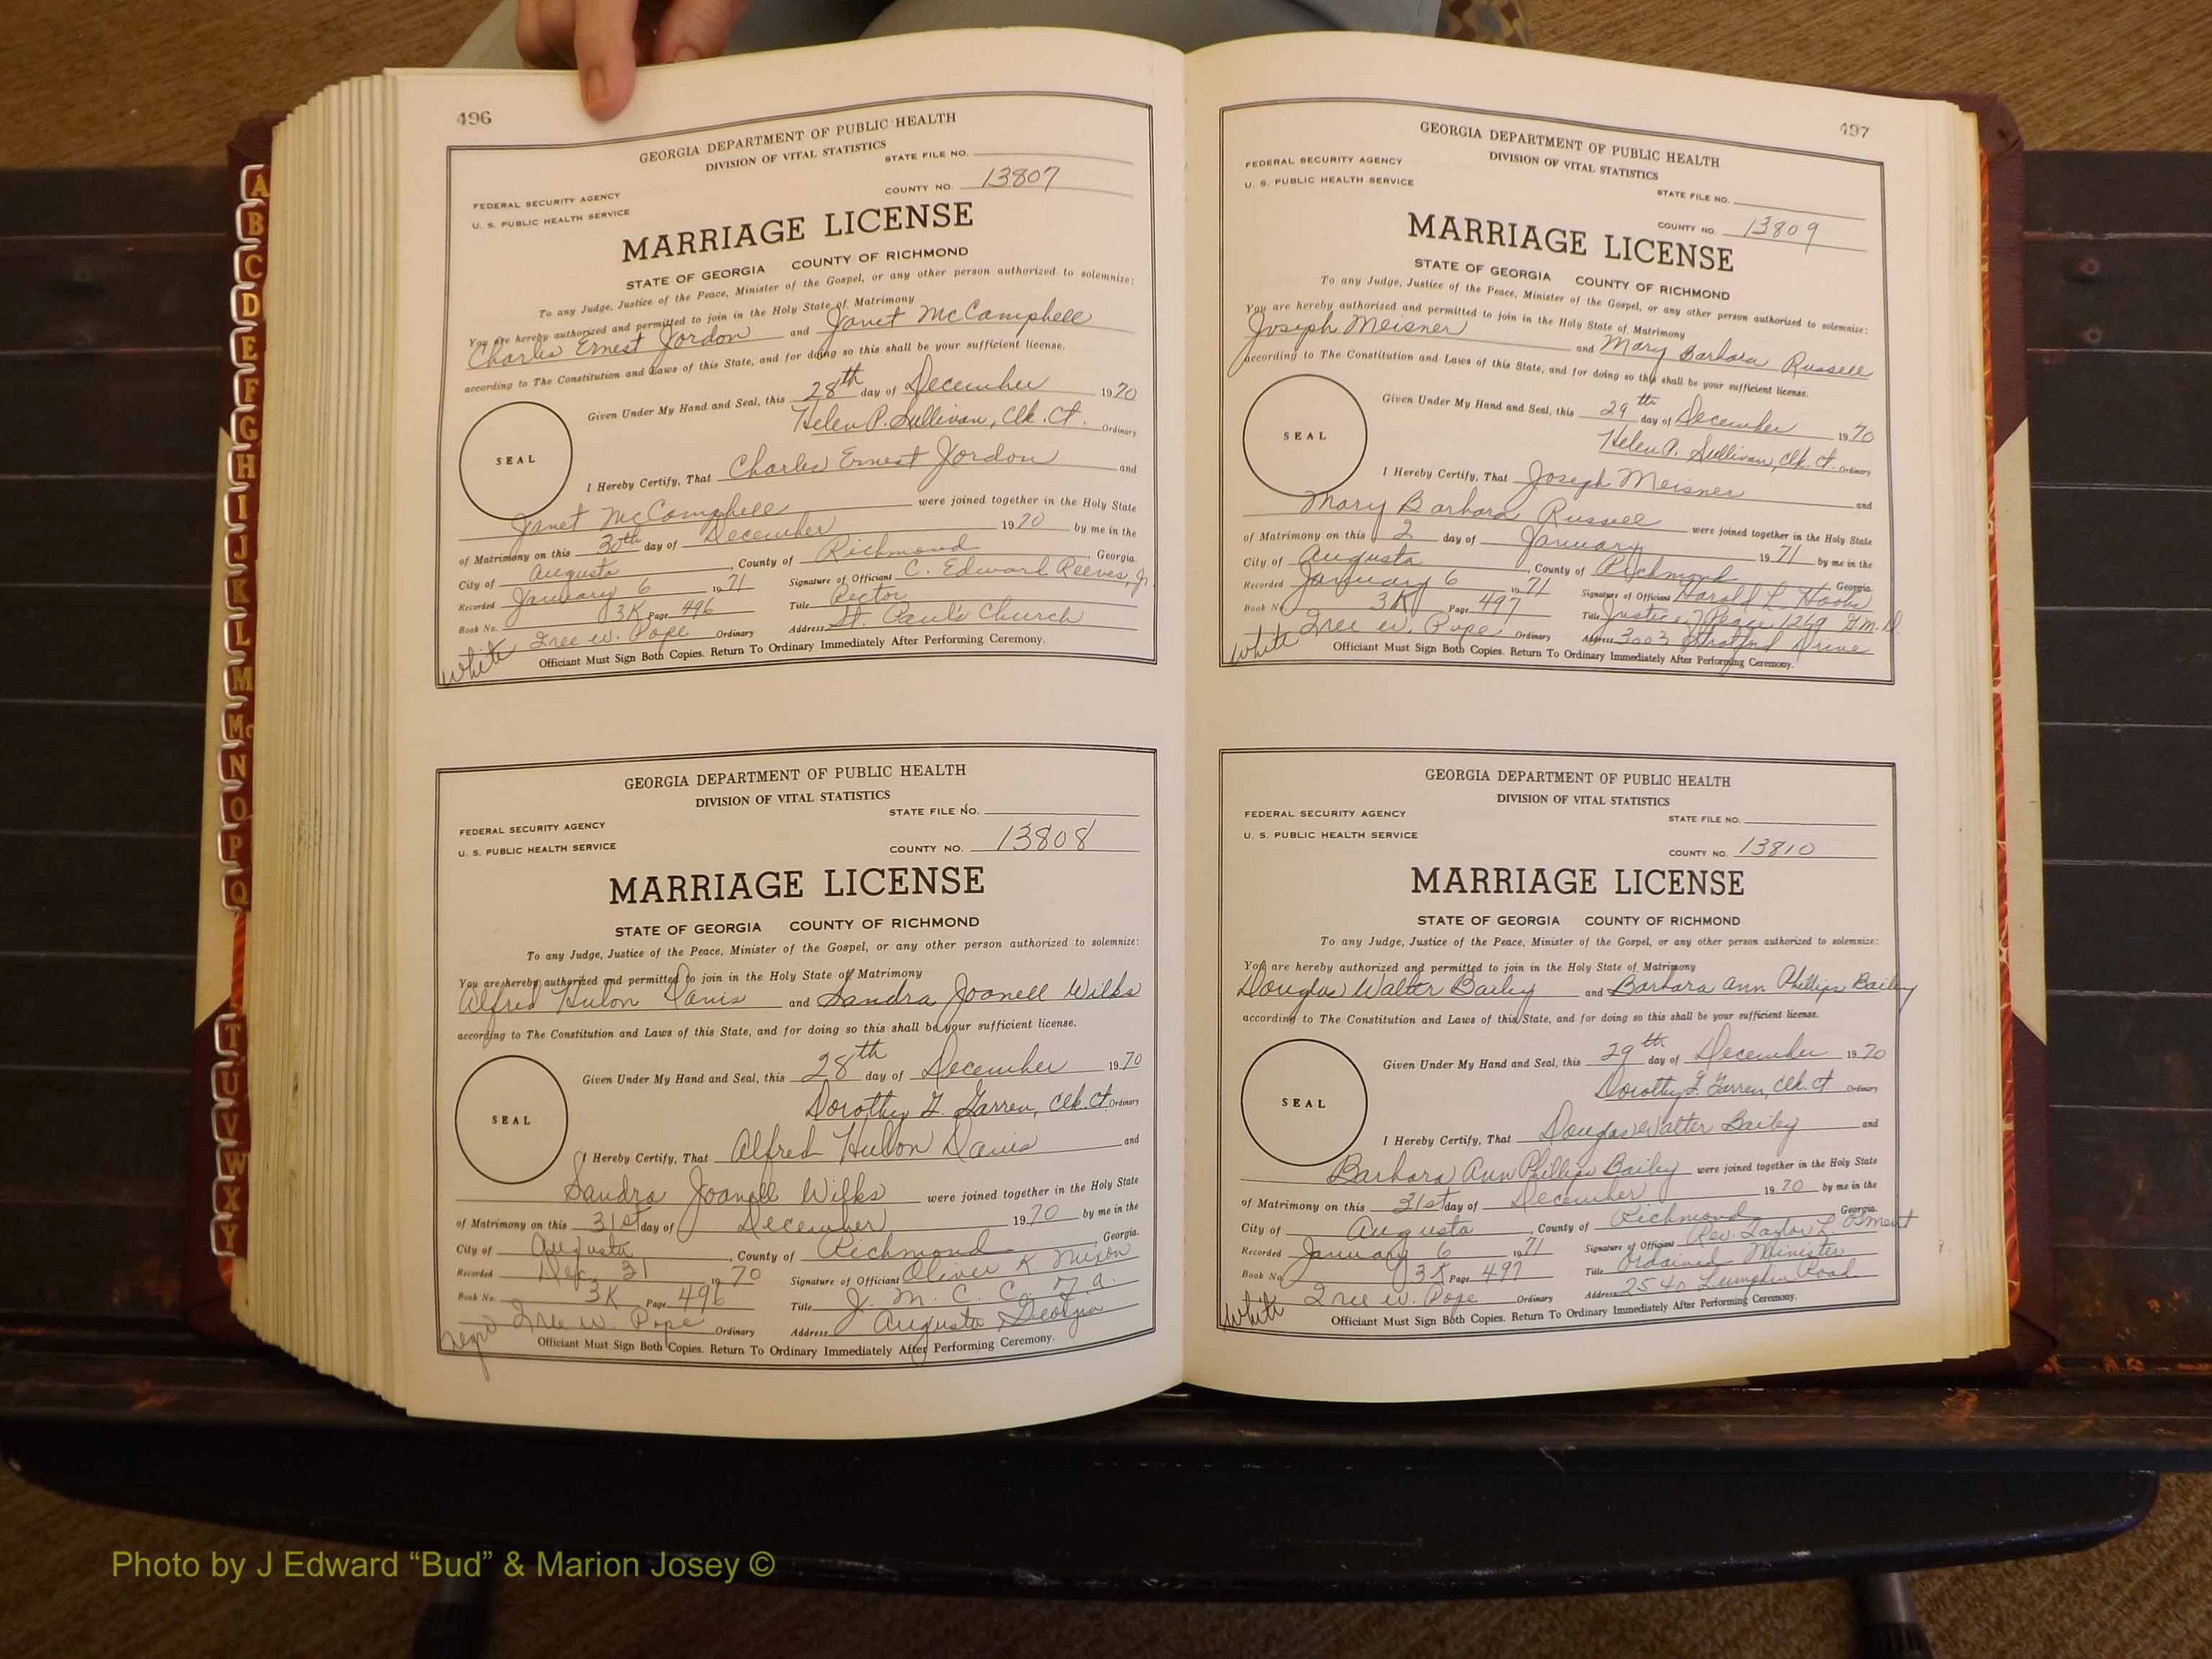 496
GEORGIA DEPARTMENT OF PUBLIC HEALTH
DIVISION OF VITAL STATISTICS
STATE FILE NO.
COUNTY NO. 13807
FEDERAL SECURITY AGENCY
U. S. PUBLIC HEALTH SERVICE
MARRIAGE LICENSE
STATE OF GEORGIA COUNTY OF RICHMOND
To any Judge, Justice of the Peace, Minister of the Gospel, or any other person authorized to solemnize:
You are hereby authorized and permitted to join in the Holy State of Matrimony
Charles Ernest Jordon and Janet McCamphell
according to The Constitution and Laws of this State, and for doing so this shall be your sufficient license.
Given Under My Hand and Seal, this 28th day of December 1970
Helen P. Sullivan, Clk. Ct. Ordinary
SEAL
I Hereby Certify, That Charles Ernest Jordon and
Janet McCamphell were joined together in the Holy State
of Matrimony on this 30th day of December 1970 by me in the
City of Augusta, County of Richmond, Georgia.
Recorded January 6 1971 Signature of Officiant C. Edward Reeves, Jr
Book No. 3K Page 496 Title Rector
Ordinary Address St. Paul's Church
white
Officiant Must Sign Both Copies. Return To Ordinary Immediately After Performing Ceremony.
GEORGIA DEPARTMENT OF PUBLIC HEALTH
DIVISION OF VITAL STATISTICS
STATE FILE NO.
FEDERAL SECURITY AGENCY
U. S. PUBLIC HEALTH SERVICE
COUNTY NO. 13808
MARRIAGE LICENSE
STATE OF GEORGIA COUNTY OF RICHMOND
To any Judge, Justice of the Peace, Minister of the Gospel, or any other person authorized to solemnize:
You are hereby authorized and permitted to join in the Holy State of Matrimony
Alfred Hulon Davis and Sandra Joanell Wilks
according to The Constitution and Laws of this State, and for doing so this shall be your sufficient license.
Given Under My Hand and Seal, this 28th day of December 1970
Dorothy Garren, Clk. Ct. Ordinary
SEAL
I Hereby Certify, That Alfred Hulon Davis and
Sandra Joanell Wilks were joined together in the Holy State
of Matrimony on this 31st day of December 1970 by me in the
City of Augusta, County of Richmond, Georgia.
Recorded Dec. 31 1970 Signature of Officiant Oliver K. Nixon
Book No. 3K Page 496 Title
Ordinary Address Augusta, Georgia
negro
Officiant Must Sign Both Copies. Return To Ordinary Immediately After Performing Ceremony.
497
GEORGIA DEPARTMENT OF PUBLIC HEALTH
DIVISION OF VITAL STATISTICS
FEDERAL SECURITY AGENCY
U. S. PUBLIC HEALTH SERVICE
STATE FILE NO.
COUNTY NO. 13809
MARRIAGE LICENSE
STATE OF GEORGIA COUNTY OF RICHMOND
To any Judge, Justice of the Peace, Minister of the Gospel, or any other person authorized to solemnize:
You are hereby authorized and permitted to join in the Holy State of Matrimony
Joseph Meisner and Mary Barbara Russell
according to The Constitution and Laws of this State, and for doing so this shall be your sufficient license.
Given Under My Hand and Seal, this 29th day of December 1970
Helen P. Sullivan, Clk. Ct. Ordinary
SEAL
I Hereby Certify, That Joseph Meisner and
Mary Barbara Russell were joined together in the Holy State
of Matrimony on this 2 day of January 1971 by me in the
City of Augusta, County of Richmond Georgia.
Recorded January 6 1971 Signature of Officiant Harold L. Hooks
Book No. 3K Page 497 Title Justice of Peace 1269 G.M.D.
Ordinary Address 3003 Stratford Drive
white
Officiant Must Sign Both Copies. Return To Ordinary Immediately After Performing Ceremony.
GEORGIA DEPARTMENT OF PUBLIC HEALTH
DIVISION OF VITAL STATISTICS
FEDERAL SECURITY AGENCY
U. S. PUBLIC HEALTH SERVICE
STATE FILE NO.
COUNTY NO. 13810
MARRIAGE LICENSE
STATE OF GEORGIA COUNTY OF RICHMOND
To any Judge, Justice of the Peace, Minister of the Gospel, or any other person authorized to solemnize:
You are hereby authorized and permitted to join in the Holy State of Matrimony
Douglas Walter Bailey and Barbara Ann Phillips Bailey
according to The Constitution and Laws of this State, and for doing so this shall be your sufficient license.
Given Under My Hand and Seal, this 29th day of December 1970
Dorothy Garren, Clk. Ct. Ordinary
SEAL
I Hereby Certify, That Douglas Walter Bailey and
Barbara Ann Phillips Bailey were joined together in the Holy State
of Matrimony on this 31st day of December 1970 by me in the
City of Augusta, County of Richmond Georgia.
Recorded January 6 1971 Signature of Officiant Rev. Taylor L.
Book No. 3K Page 497 Title Ordained Minister
Ordinary Address 2540 Lumpkin Road
white
Officiant Must Sign Both Copies. Return To Ordinary Immediately After Performing Ceremony.
A
B
C
D
E
F
G
H
I
J
K
L
M
Mc
N
O
P
Q
T
U
V
W
X
Y
Photo by J Edward “Bud” & Marion Josey ©